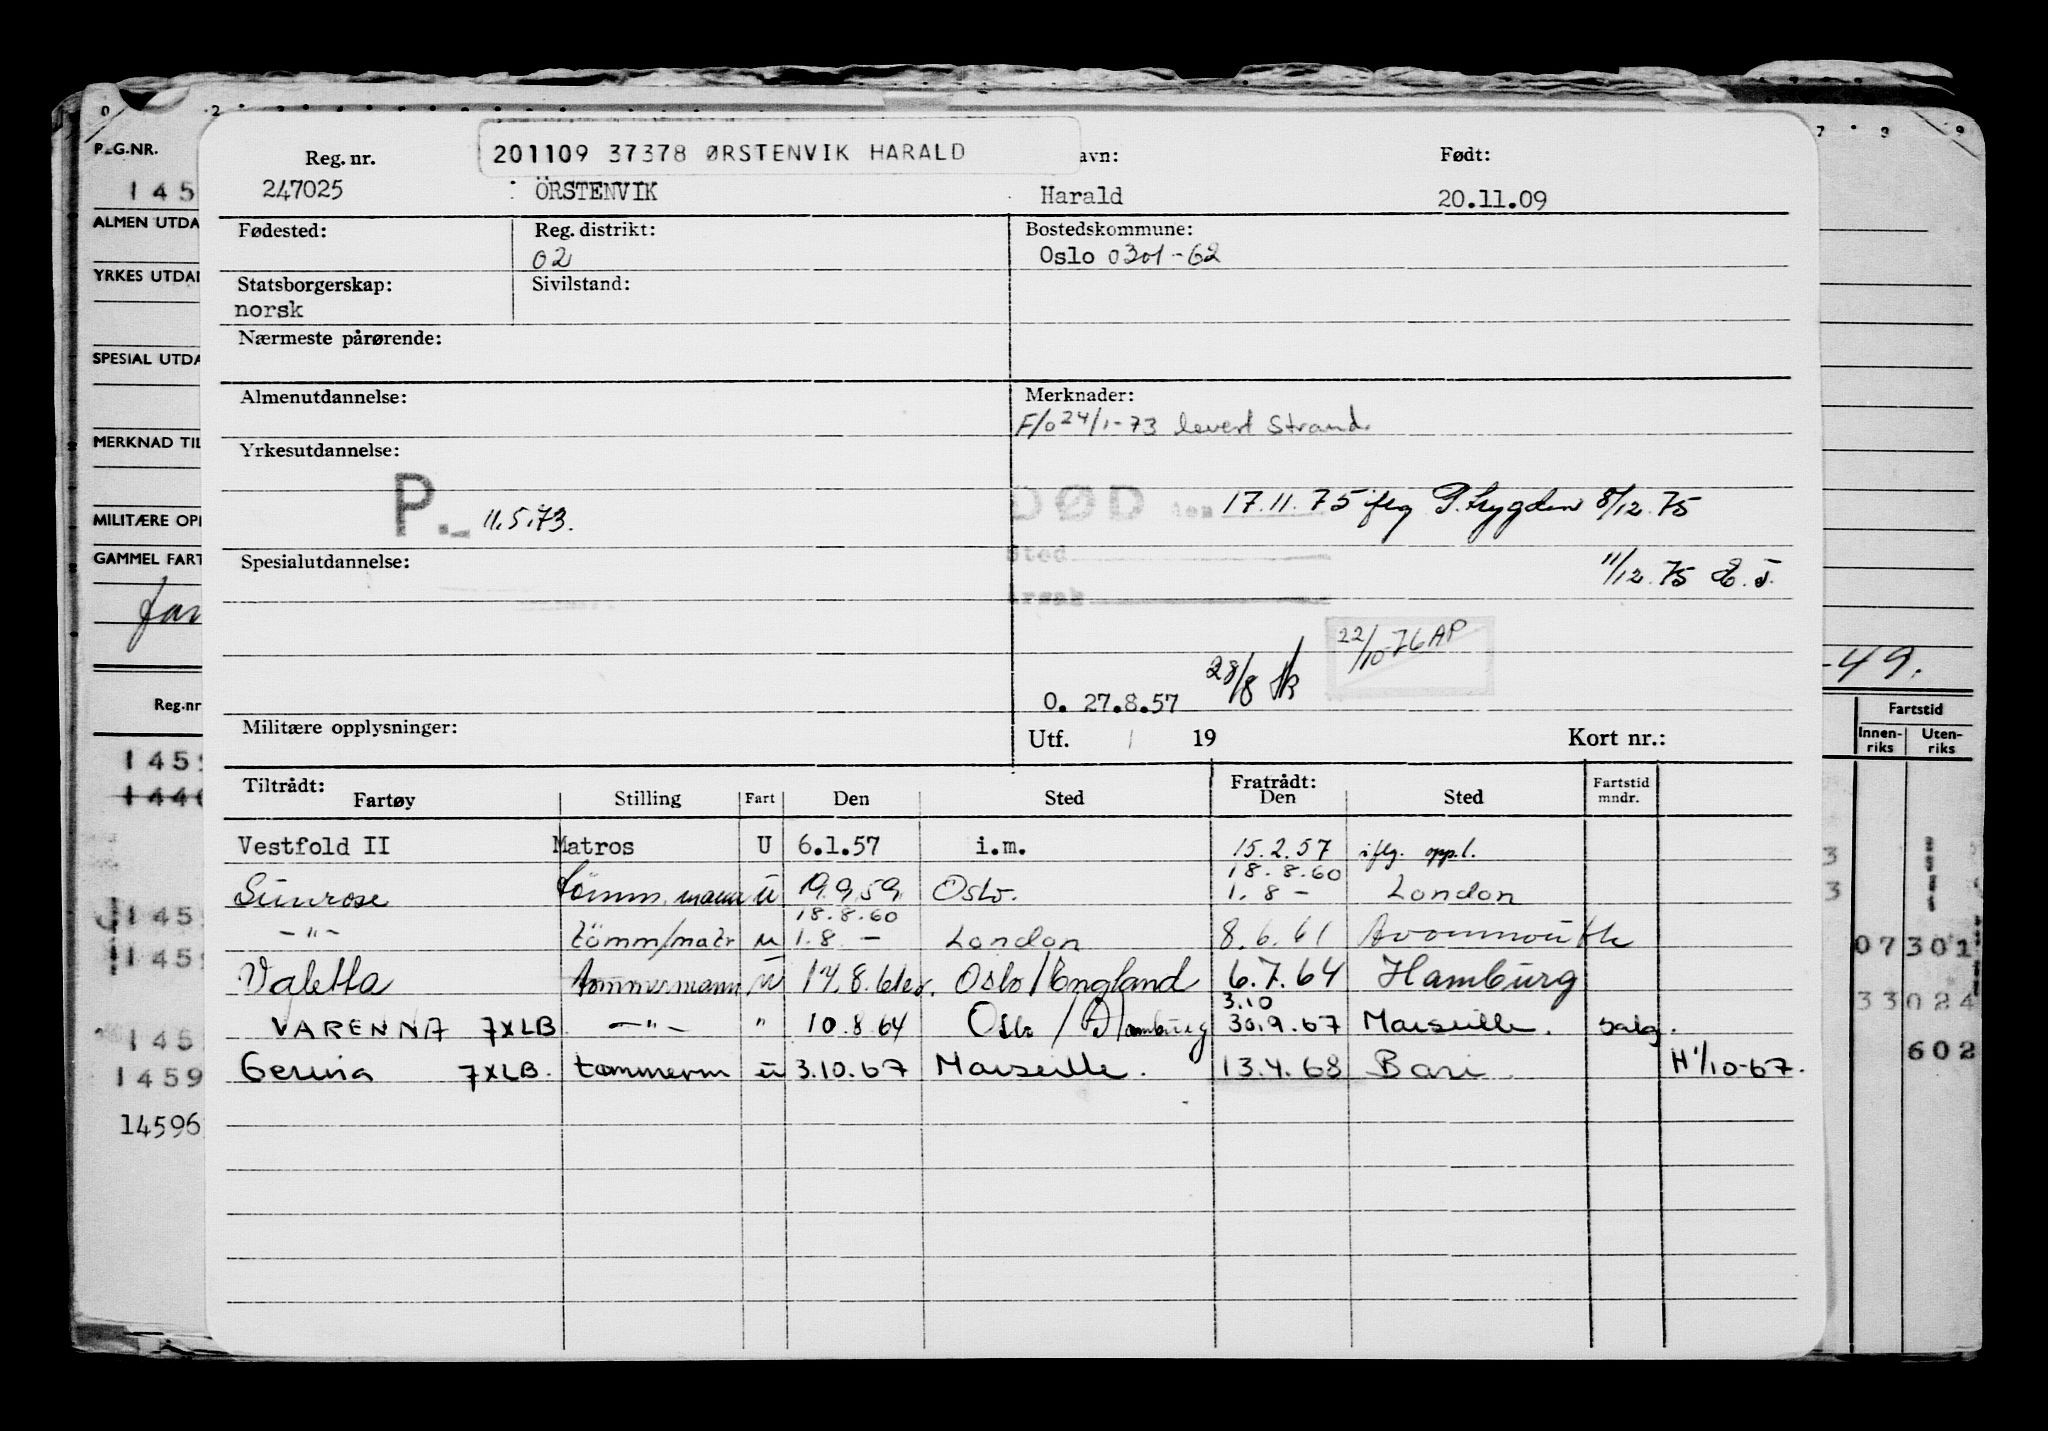 201109 37378 ØRSTENVIK HARALD
Reg. nr. avn: Født:
247025 ÖRSTENVIK Harald 20.11.09
Fødested: Reg. distrikt: Bostedskommune:
02 Oslo 0301-62
Statsborgerskap: Sivilstand:
norsk
Nærmeste pårørende:
Almenutdannelse: Merknader:
F/o 24/1-73 levert Strand.
Yrkesutdannelse:
P.- 11.5.73. DØD den 17.11.75 iflg P.trygden 8/12.75
Spesialutdannelse: Sted 11/12.75 E.J.
Årsak
22/10-76 AP
O. 27.8.57 28/8
Militære opplysninger: Utf. / 19 Kort nr.:
Tiltrådt: Fratrådt:
Fartøy Stilling Fart Den Sted Den Sted Fartstid mndr.
Vestfold II Matros U 6.1.57 i.m. 15.2.57 iflg. oppl.
18.8.60
Sunrose tömm.mann u 19.9.59 Oslo. 1.8 - London
18.8.60
-"- tömm/matr u 1.8 - London 8.6.61 Avonmouth
Valetta tømmermann u 14.8.61 Oslo/England 6.7.64 Hamburg
3.10
VARENNA 7XLB -"- " 10.8.64 Oslo/Hamburg 30.9.67 Marseille. salg.
Gerina 7XLB. tømmerm u 3.10.67 Marseille. 13.4.68 Bari. H 1/10-67.
0 2 7 8 9
REG.NR.
145
ALMEN UTDA
YRKES UTDAN
SPESIAL UTDA
MERKNAD TIL
MILITÆRE OPP
GAMMEL FART
-49.
Reg.nr
Fartstid
Innen-riks Uten-riks
1459
1440
3
3
1459
1459
07301
33024
1459
602
1459
14596